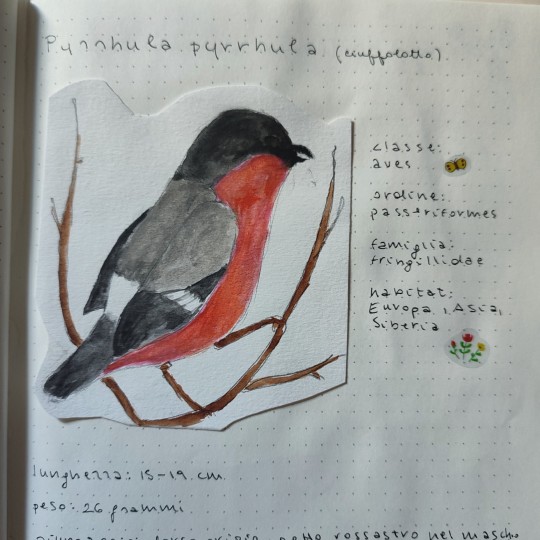 Pyrrhula pyrrhula (ciuffolotto)
classe:
aves
ordine:
passeriformes
famiglia:
fringillidae
habitat:
Europa, Asia,
Siberia
lunghezza: 15-19 cm
peso: 26 grammi
petto rossastro nel maschio